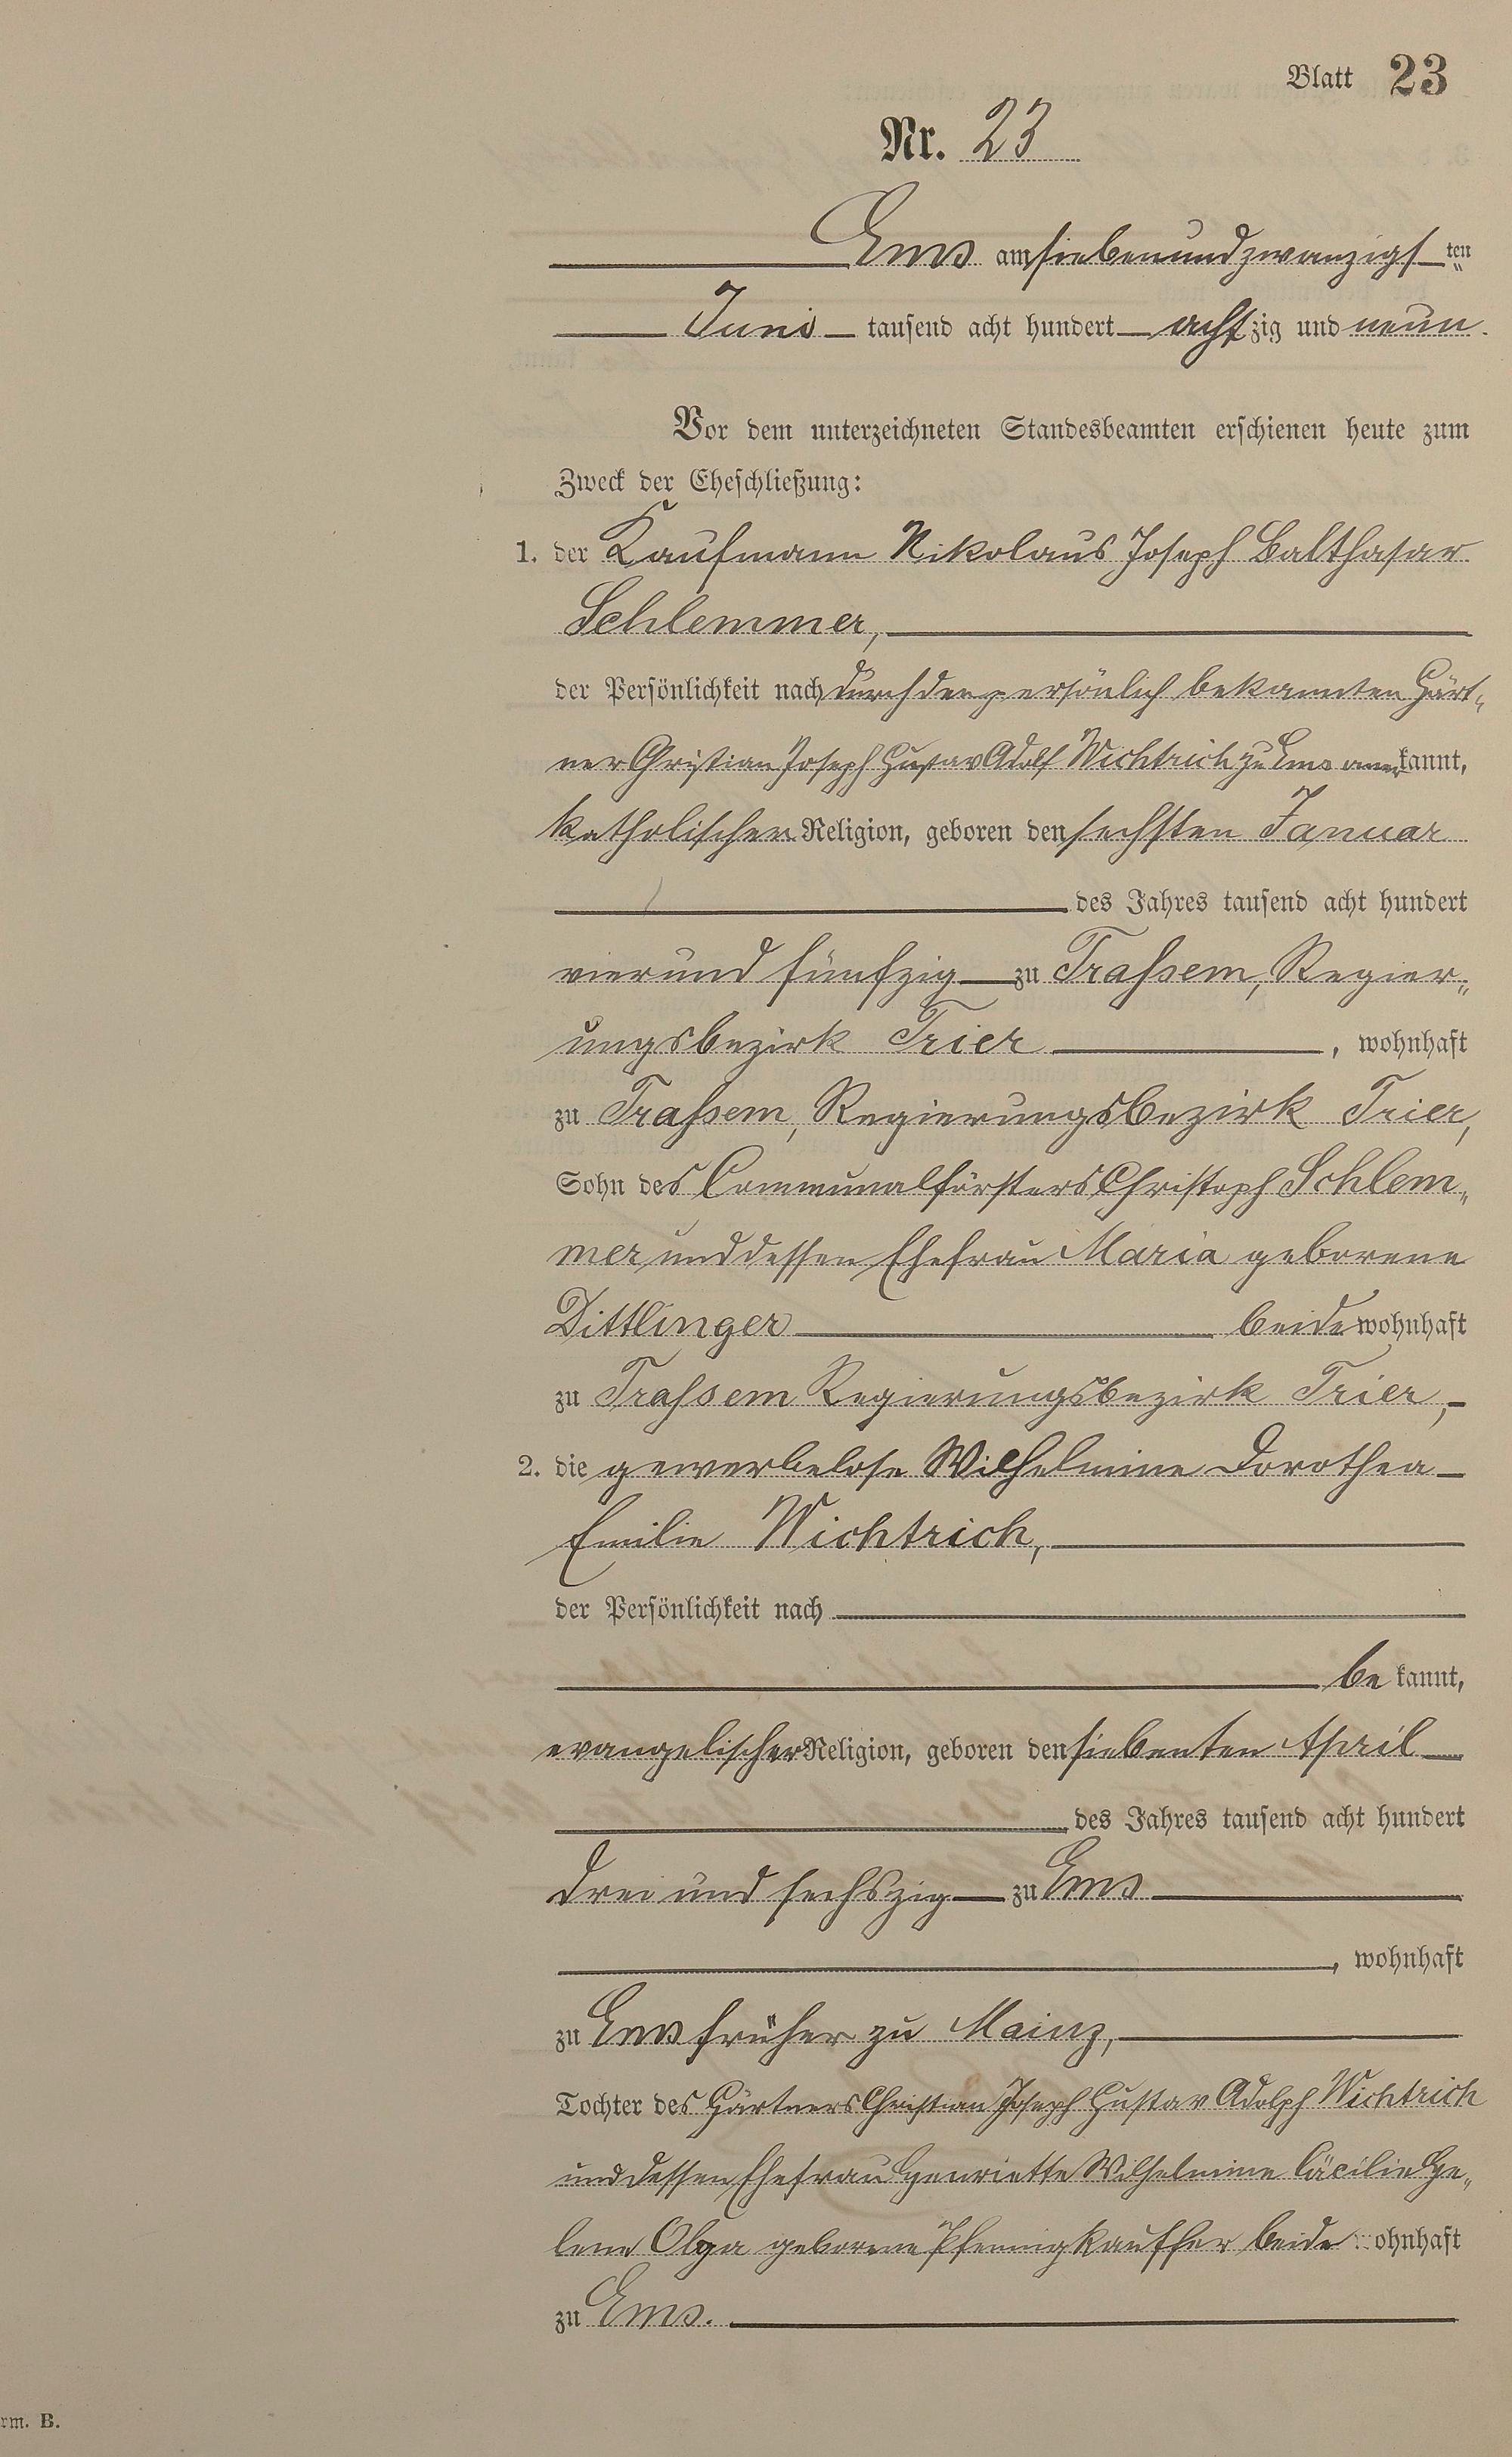 Blatt 23
Nr. 23
Ems am siebenundzwanzigsten
Juni tausend acht hundert achtzig und neun.
Vor dem unterzeichneten Standesbeamten erschienen heute zum
Zweck der Eheschließung:
1. der Kaufmann Nikolaus Joseph Balthasar
Schlemmer,
der Persönlichkeit nach durch den persönlich bekannten Gärt„
ner Christian Joseph Gustav Adolf Wichtrich zu Ems anerkannt,
katholischer Religion, geboren den sechsten Januar
des Jahres tausend acht hundert
vierund fünfzig zu Trassem, Regier„
ungsbezirk Trier, wohnhaft
zu Trassem, Regierungsbezirk Trier,
Sohn des Communalförsters Christoph Schlem„
mer und dessen Ehefrau Maria geborene
Dittlinger beide wohnhaft
zu Trassem Regierungsbezirk Trier,
2. die gewerbelose Wilhelmine Dorothea
Emilie Wichtrich,
der Persönlichkeit nach
bekannt,
evangelischer Religion, geboren den siebenten April
des Jahres tausend acht hundert
drei und sechszig zu Ems
, wohnhaft
zu Ems früher zu Mainz,
Tochter des Gärtners Christian Joseph Gustav Adolph Wichtrich
und dessen Ehefrau Henriette Wilhelmine Cäcilie He„
lene Olga geborene Pfennigkauffer beide wohnhaft
zu Ems.
rm. B.